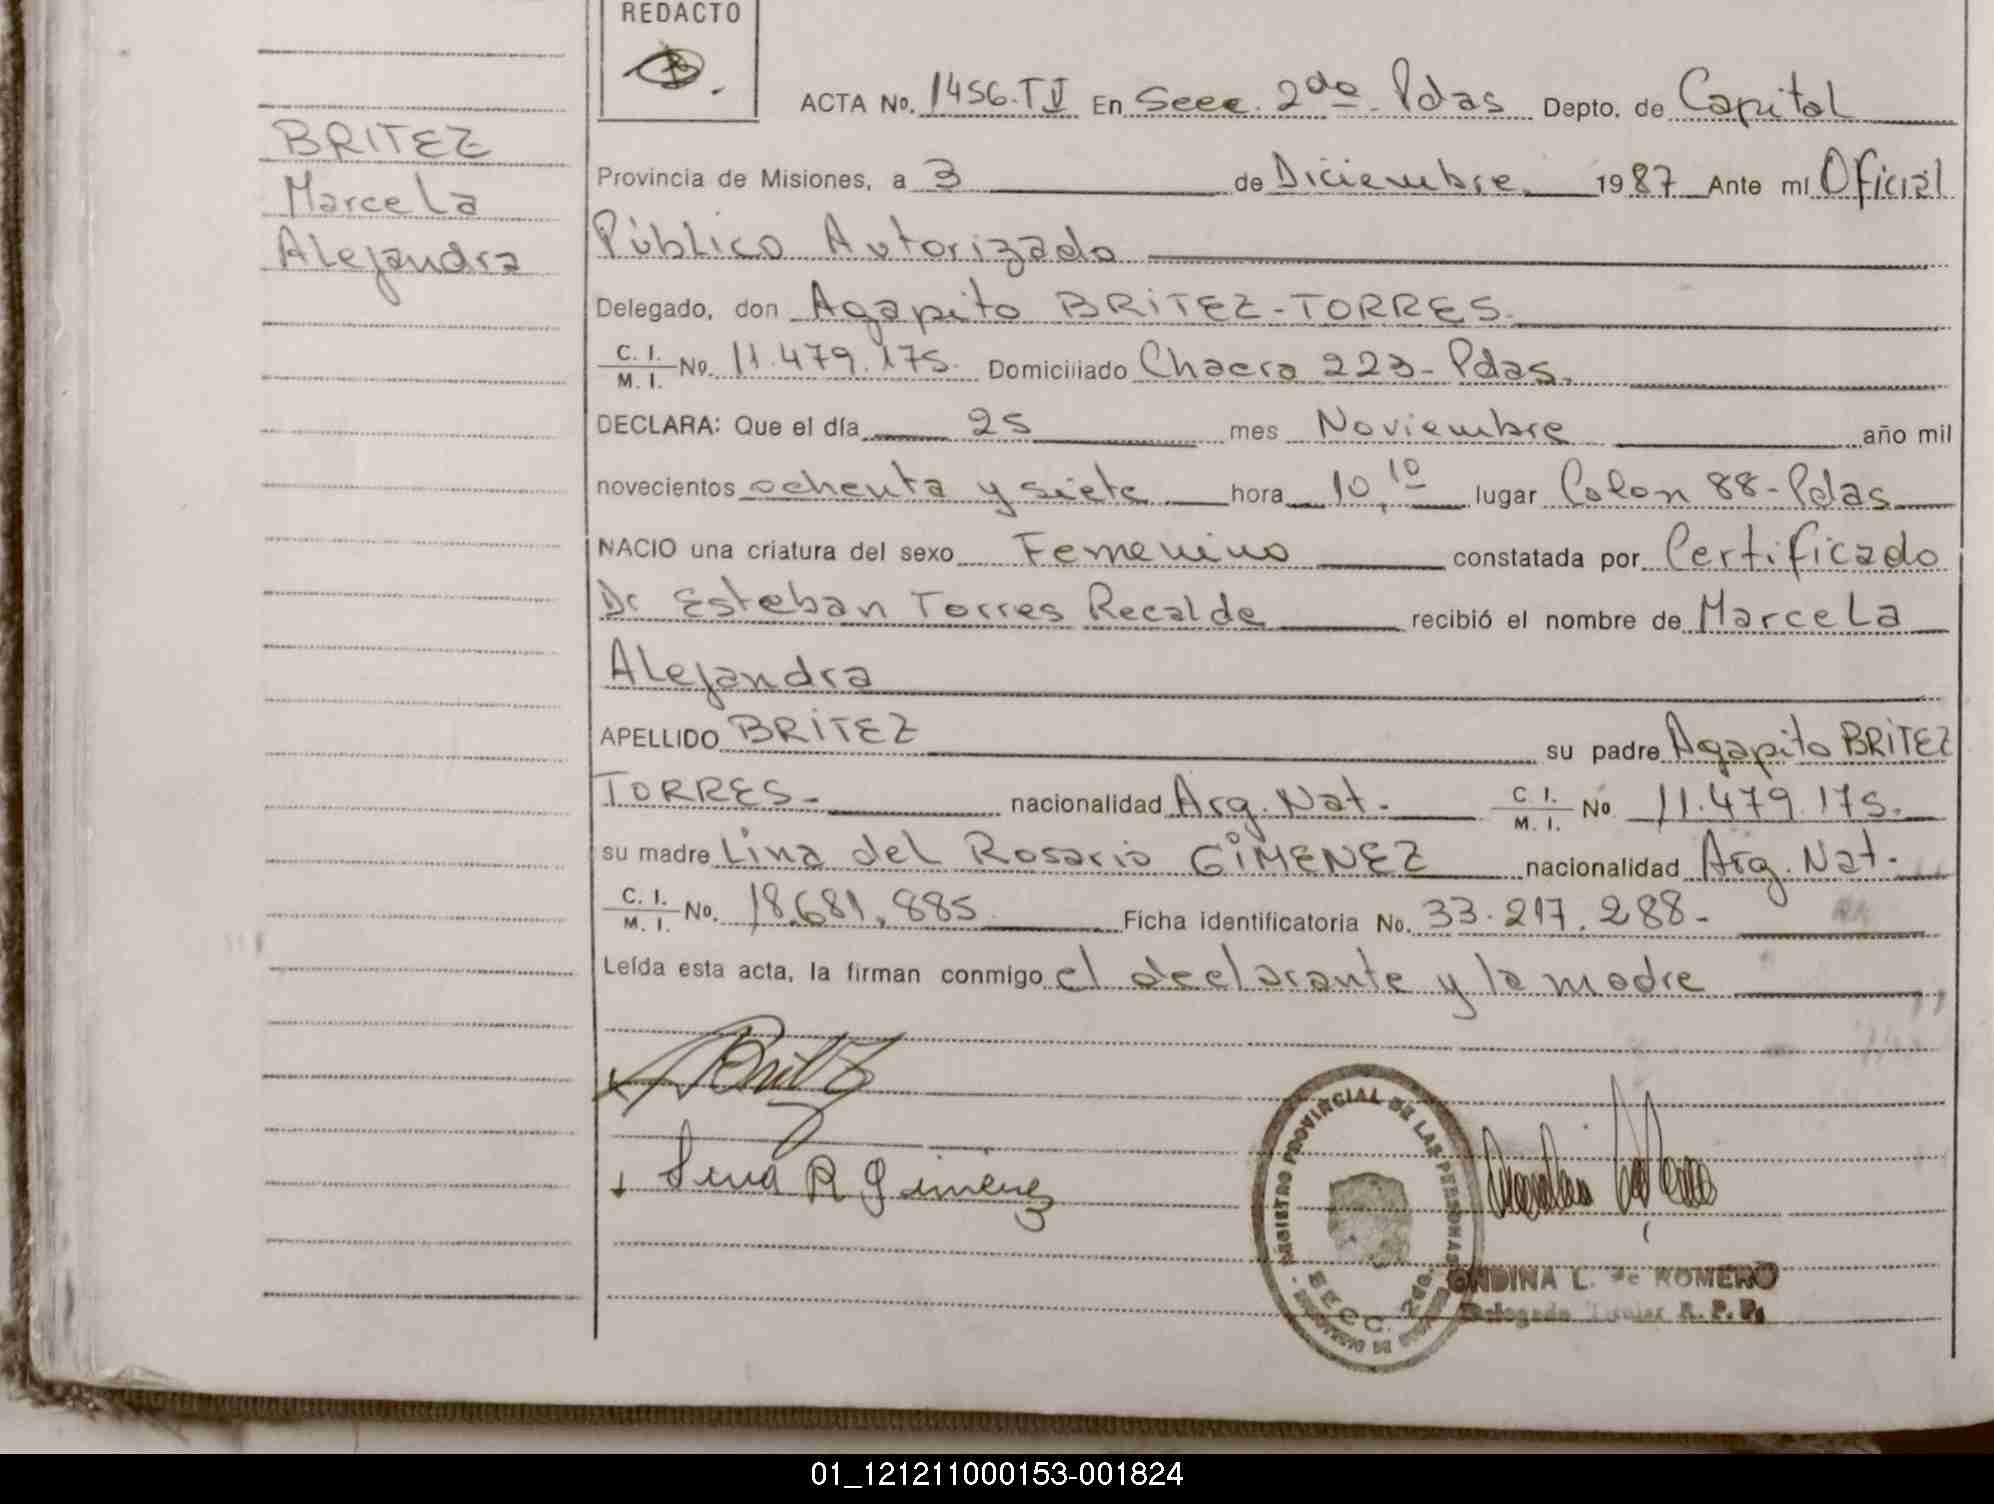 REDACTO
ACTA No. 1456. T V En Secc. 2do. Pdas Depto. de Capital
BRITEZ
Marcela
Alejandra
Provincia de Misiones, a 3 de Diciembre 1987 Ante mi Oficial
Público Autorizado
Delegado, don Agapito BRITEZ-TORRES.
C. I. / M. I. No. 11.479.175. Domiciliado Chacra 223- Pdas.
DECLARA: Que el día 25 mes Noviembre año mil
novecientos ochenta y siete hora 10,10 lugar Colon 88-Pdas
NACIO una criatura del sexo Femenino constatada por Certificado
Dr Esteban Torres Recalde recibió el nombre de Marcela
Alejandra
APELLIDO BRITEZ su padre Agapito BRITEZ
TORRES- nacionalidad Arg. Nat. C I. / M. I. No 11.479.175.
su madre Lina del Rosario GIMENEZ nacionalidad Arg. Nat.
C. I. / M. I. No. 18.681.885 Ficha identificatoria No. 33.217.288-
Leída esta acta, la firman conmigo el declarante y la madre
Lina R Gimenez
REGISTRO PROVINCIAL DE LAS PERSONAS
SECC. 2da.
ONDINA L. de ROMERO
Delegado Titular R. P. P.
01_121211000153-001824